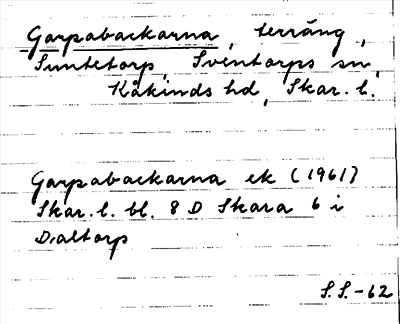 Garpabackarna, terräng,
Suntetorp, Sventorps sn,
Kåkinds hd, Skar. l.
Garpabackarna ek (1961)
Skar. l. bl. 8 D Skara 6 i
Dialtorp
S.S.-62